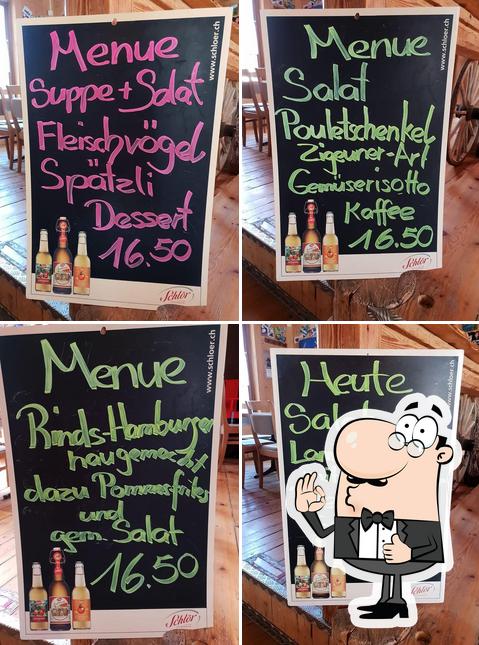 Menue
Suppe + Salat
Fleischvögel
Spätzli
Dessert
16.50
www.schloer.ch
Schlör
Menue
Salat
Pouletschenkel
Zigeuner-Art
Gemüserisotto
Kaffee
16.50
www.schloer.ch
Schlör
Menue
Rinds-Hamburger
hausgemacht
dazu Pommesfrites
und
gem. Salat
16.50
www.schloer.ch
Schlör
Heute
www.schloer.ch